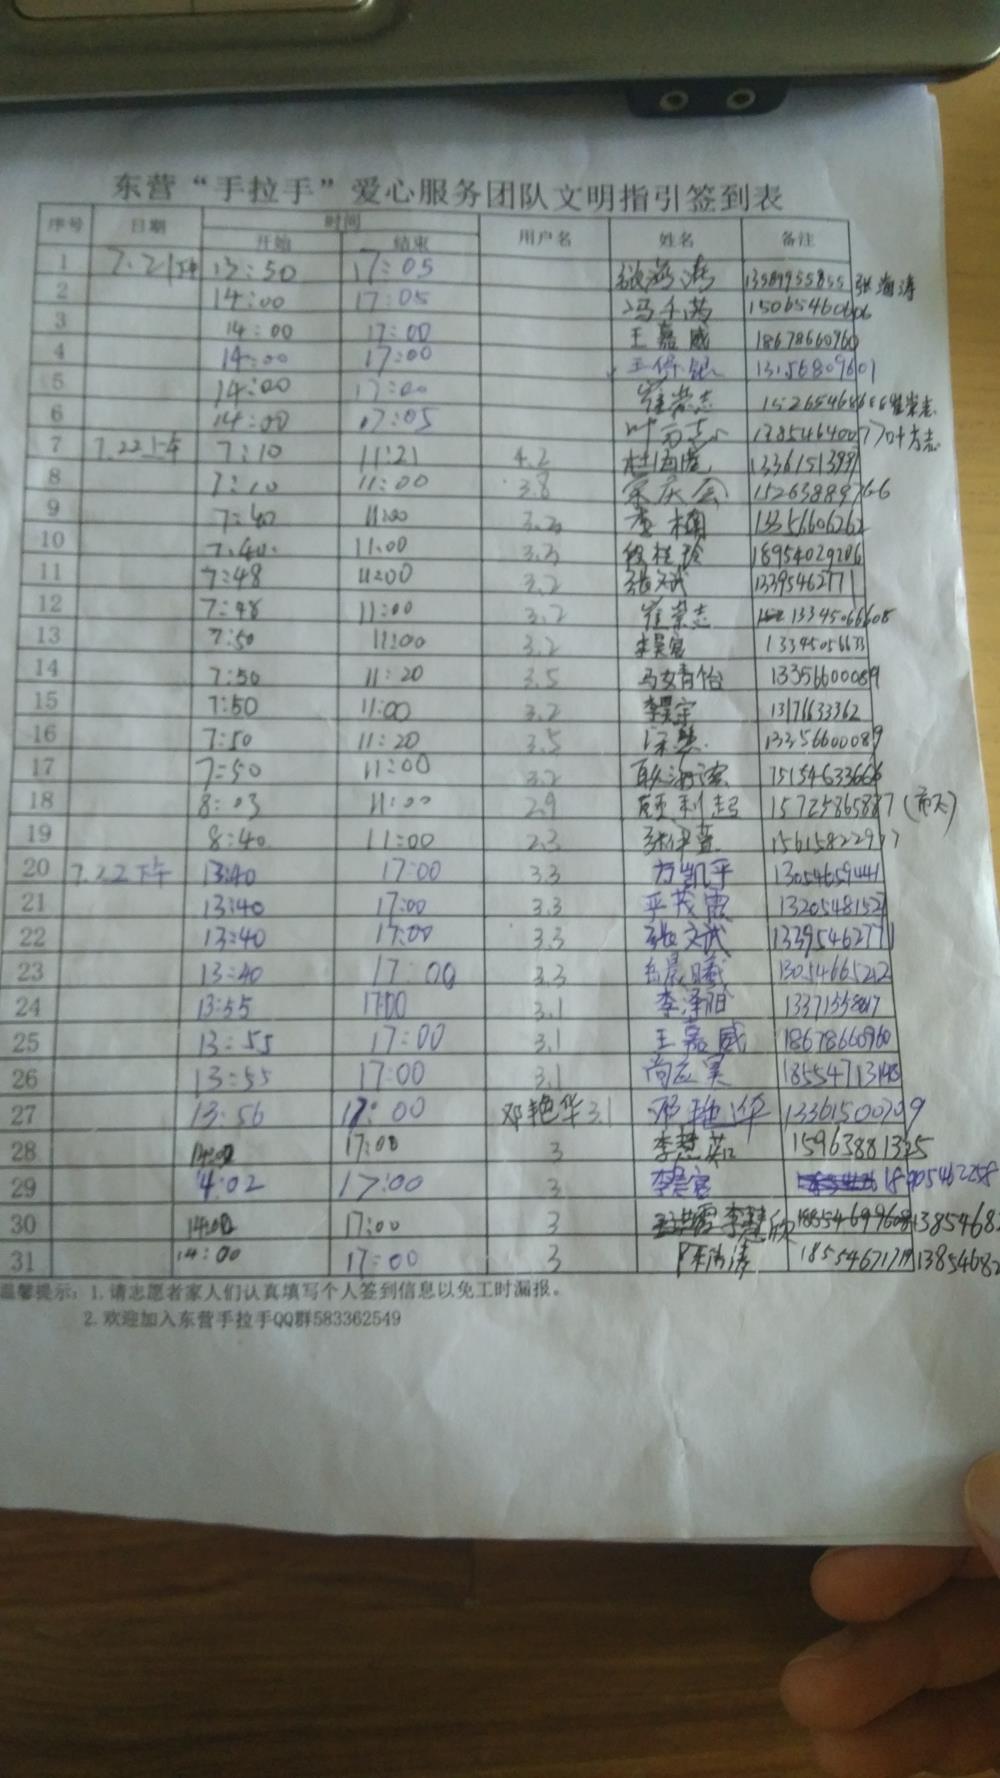 东营“手拉手”爱心服务团队文明指引签到表
序号 日期 时间 用户名 姓名 备注
开始 结束
1 7.21下午 13:50 17:05 张海涛 13589955855 张海涛
2 14:00 17:05 15065460606
3 14:00 17:00 王嘉威 18678660960
4 14:00 17:00 王保银 13156809601
5 14:00 17:00 崔崇志 崔崇志
6 14:00 17:05 叶方志 13854640077 叶方志
7 7.22上午 7:10 11:21 4.2
8 7:10 11:00 3.8 宋庆会 15263889766
9 7:40 11:00 3.2 李楠 13356606262
10 7:40 11:00 3.3 段桂玲 18954029206
11 7:48 11:00 3.2 张文斌 13395462771
12 7:48 11:00 3.2 崔崇志 13345066608
13 7:50 11:00 3.2 李昊宸 13345056633
14 7:50 11:20 3.5 马婧怡 13356600089
15 7:50 11:00 3.2 李昊宇 13171633362
16 7:50 11:20 3.5 梁慧 13356600089
17 7:50 11:00 3.2 15154633666
18 8:03 11:00 2.9 顾利起 15725865887
19 8:40 11:00 2.3 张伊萱
20 7.22下午 13:40 17:00 3.3 方凯平 13054659441
21 13:40 17:00 3.3 平茂霞 13205481521
22 13:40 17:00 3.3 张文斌 13395462771
23 13:40 17:00 3.3 晨曦 13054665212
24 13:55 17:00 3.1 李泽阳
25 13:55 17:00 3.1 王嘉威 18678660960
26 13:55 17:00 3.1 尚应昊
27 13:56 17:00 邓艳华 3.1 邓艳华 13361500709
28 14:00 17:00 3 李慧茹 15963881335
29 4:02 17:00 3 李昊宸 18905462258
30 14:00 17:00 3 李慧欣
31 14:00 17:00 3 陈海涛
温馨提示：1.请志愿者家人们认真填写个人签到信息以免工时漏报。
2.欢迎加入东营手拉手QQ群583362549